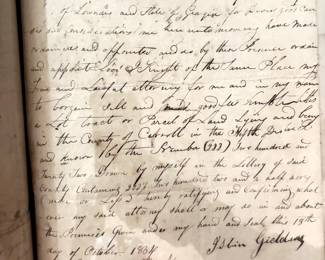 of Lowndes and State of Georgia for Divers good Cau
ses and considerations me here unto moving have made
ordained and appointed and do by these Presents ordain
and appoint Levi J. Knight of the Same Place my
true and Lawful attorney for me and in my name
to bargain Sell and make good
a Lot tract or Parcel of Land Lying and being
in the County of Carroll in the fifth District
and known by the Number (222) Two hundred and
Twenty Two Drawn by myself in the Lottery of said
County Containing 202½ Two hundred two and a half acres
(more or Less) hereby ratifying and Confirming what
ever my said attorney shall or may do in and about
the Premises Given under my hand and Seal this 18th
day of October 1834